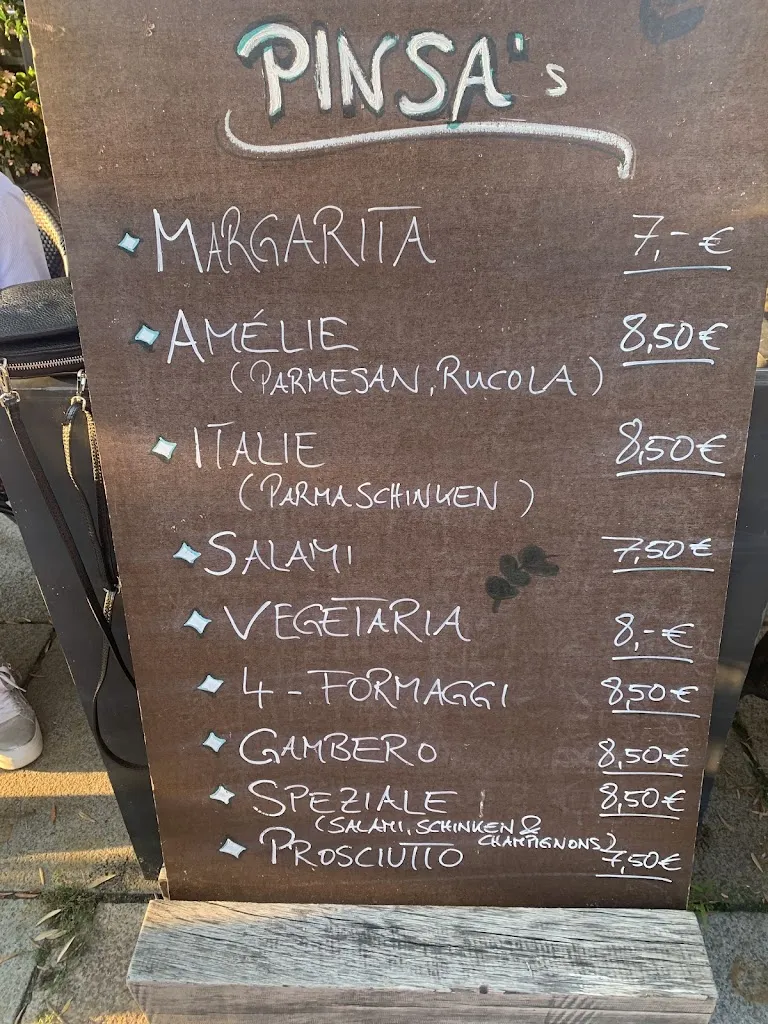 PINSA's
MARGARITA 7,-€
AMÉLIE 8,50€
(PARMESAN, RUCOLA)
ITALIE 8,50€
(PARMASCHINKEN)
SALAMI 7,50€
VEGETARIA 8,-€
4-FORMAGGI 8,50€
GAMBERO 8,50€
SPEZIALE 8,50€
(SALAMI, SCHINKEN &
CHAMPIGNONS)
PROSCIUTTO 7,50€